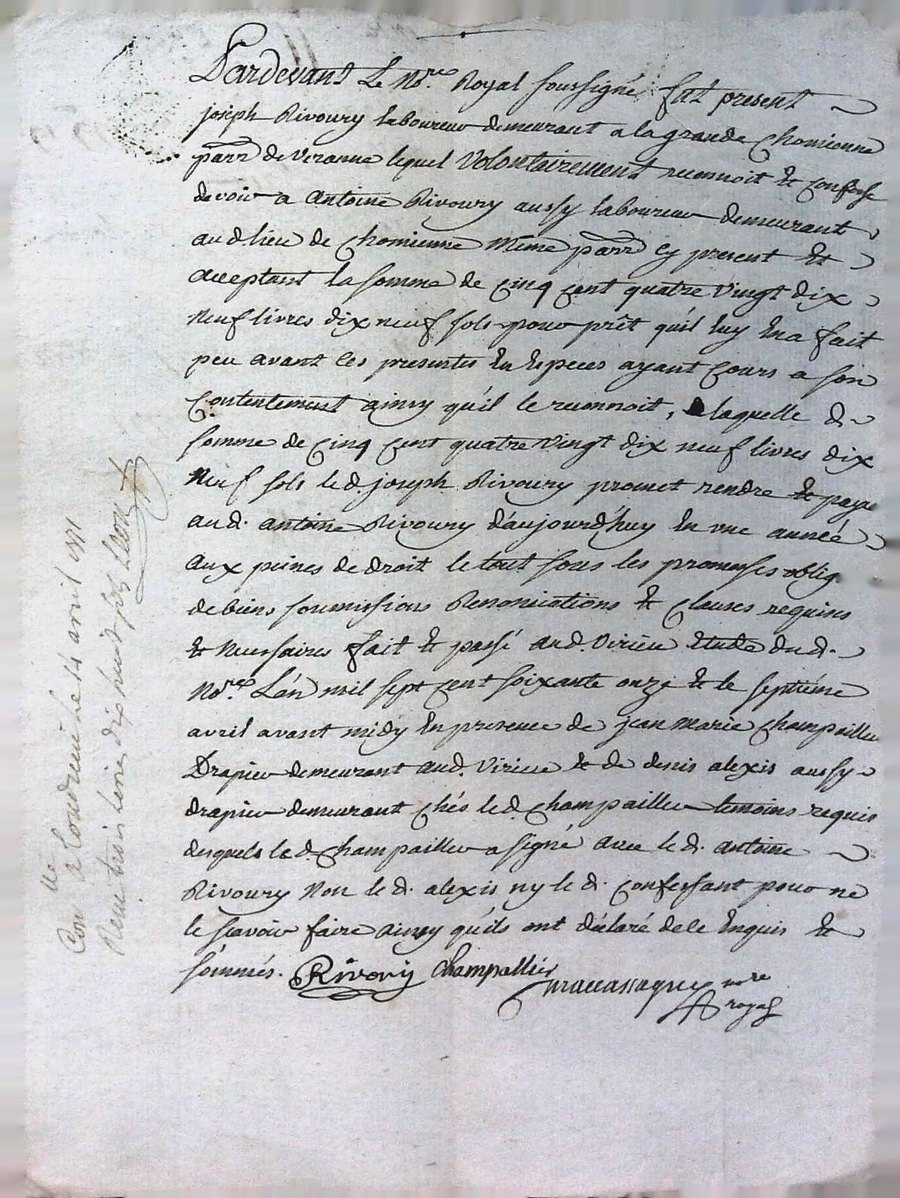 Pardevant Le No.re Royal soussigné fut present
joseph Rivoury laboureur demeurant a la grande Chomienne
parr de veranne lequel volontairement reconnoit et confesse
devoir a Antoine Rivoury aussy laboureur demeurant
aud lieu de chomienne même parr cy present et
acceptant la somme de cinq cent quatre vingt dix
neuf livres dix neuf sols pour prêt qu'il luy en a fait
peu avant les presentes en especes ayant cours a son
contentement ainsy qu'il le reconnoit, laquelle d.
somme de cinq cent quatre vingt dix neuf livres dix
neuf sols le d. joseph Rivoury promet rendre et payer
au d. antoine Rivoury d'aujourd'huy en une année
aux peines de droit le tout sous les promesses oblig.
de biens soumissions Renonciations et clauses requises
et necessaires fait et passé aud. Virieu étude du d.
No.re L'an mil sept cent soixante onze et le septième
avril avant midy en presence de jean marie Champailler
Drapier demeurant aud. Virieu et de denis alexis aussy
drapier demeurant chés le d. champailler temoins requis
desquels le d. champailler a signé avec le d. antoine
Rivoury non le d. alexis ny le d. confessant pour ne
le scavoir faire ainsy qu'ils ont déclaré de ce enquis et
sommés. Rivory Champallier
nre
royal
Con.lle a Condrieu le 14 avril 1771
Reçu trois livres dix huit sols